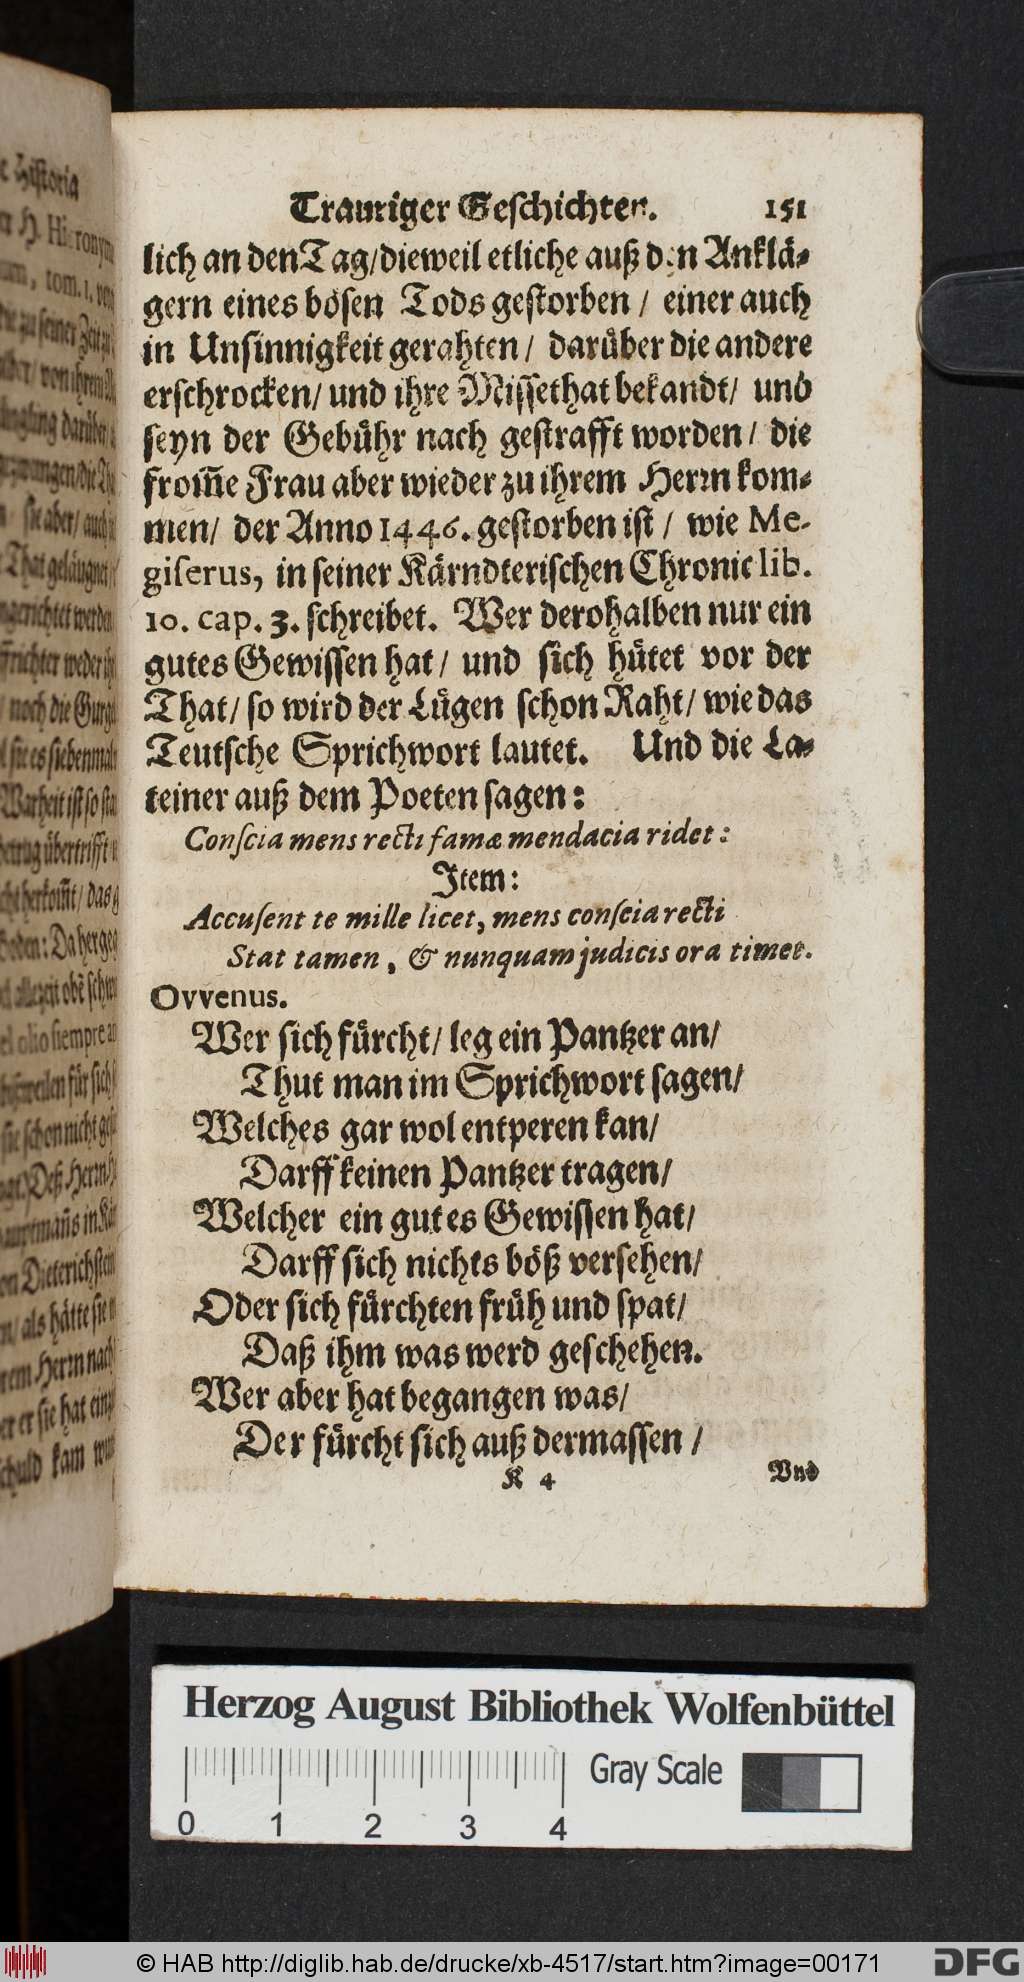 Trauriger Geschichten. 151
lich an den Tag/dieweil etliche auß den Anklä-
gern eines bösen Tods gestorben / einer auch
in Unsinnigkeit gerahten / darüber die andere
erschrocken/ und ihre Missethat bekandt/ und
seyn der Gebühr nach gestrafft worden / die
from̃e Frau aber wieder zu ihrem Herrn kom-
men/ der Anno 1446. gestorben ist / wie Me-
giserus, in seiner Kärndterischen Chronic lib.
10. cap. 3. schreibet. Wer derohalben nur ein
gutes Gewissen hat/ und sich hütet vor der
That/ so wird der Lügen schon Raht/ wie das
Teutsche Sprichwort lautet. Und die La-
teiner auß dem Poeten sagen:
Conscia mens recti famæ mendacia ridet:
Item:
Accusent te mille licet, mens conscia recti
Stat tamen, & nunquam judicis ora timet.
Ovvenus.
Wer sich fürcht/ leg ein Pantzer an/
Thut man im Sprichwort sagen/
Welches gar wol entperen kan/
Darff keinen Pantzer tragen/
Welcher ein gutes Gewissen hat/
Darff sich nichts böß versehen/
Oder sich fürchten früh und spat/
Daß ihm was werd geschehen.
Wer aber hat begangen was/
Der fürcht sich auß dermassen /
K 4 Und
Herzog August Bibliothek Wolfenbüttel
Gray Scale
0 1 2 3 4
© HAB http://diglib.hab.de/drucke/xb-4517/start.htm?image=00171
DFG